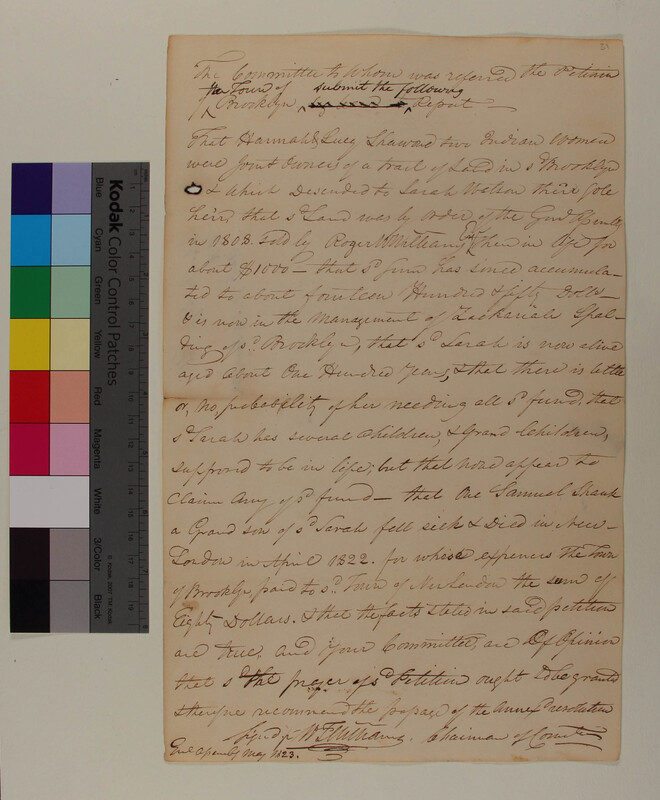 31
The Committee to Whom was referred the Petition
of the Town of Brooklyn submit the following Report
That Hannah & Lucy Shaward two Indian Women
were Joint Owners of a tract of Land in sd Brooklyn
& Which Descended to Sarah Watson there Sole
heir, that sd Land was by order of the Genl Assembly
in 1808. Sold by Roger W Williams Esqr then in Life for
about $1000 — that sd Sum has since accumula-
ted to about fourteen Hundred & fifty Dolls—
& is now in the Management of Zachariah Spal-
ding of sd Brooklyn, that sd Sarah is now alive
aged about One Hundred Years, & that there is little
or, No probability of her needing all sd fund, that
sd Sarah has several Children, & Grand Children,
supposed to be in life; but that none appear to
Claim Any of sd fund — that One Samuel Shank
a Grand son of sd Sarah fell sick & Died in New-
London in April 1822. for whose expences The Town
of Brooklyn paid to sd Town of New London the sum of
Eighty Dollars. & that the facts stated in said petition
are true, and Your Committee, are Of Opinion
that the prayer of sd Petition ought to be granted
& therefore recommend the passage of the Annexd resolution
Signd pr W Williams. Chairman of Comtee
Genl Assembly May 1823.
Kodak Color Control Patches
Blue
Cyan
Green
Yellow
Red
Magenta
White
3/Color
Black